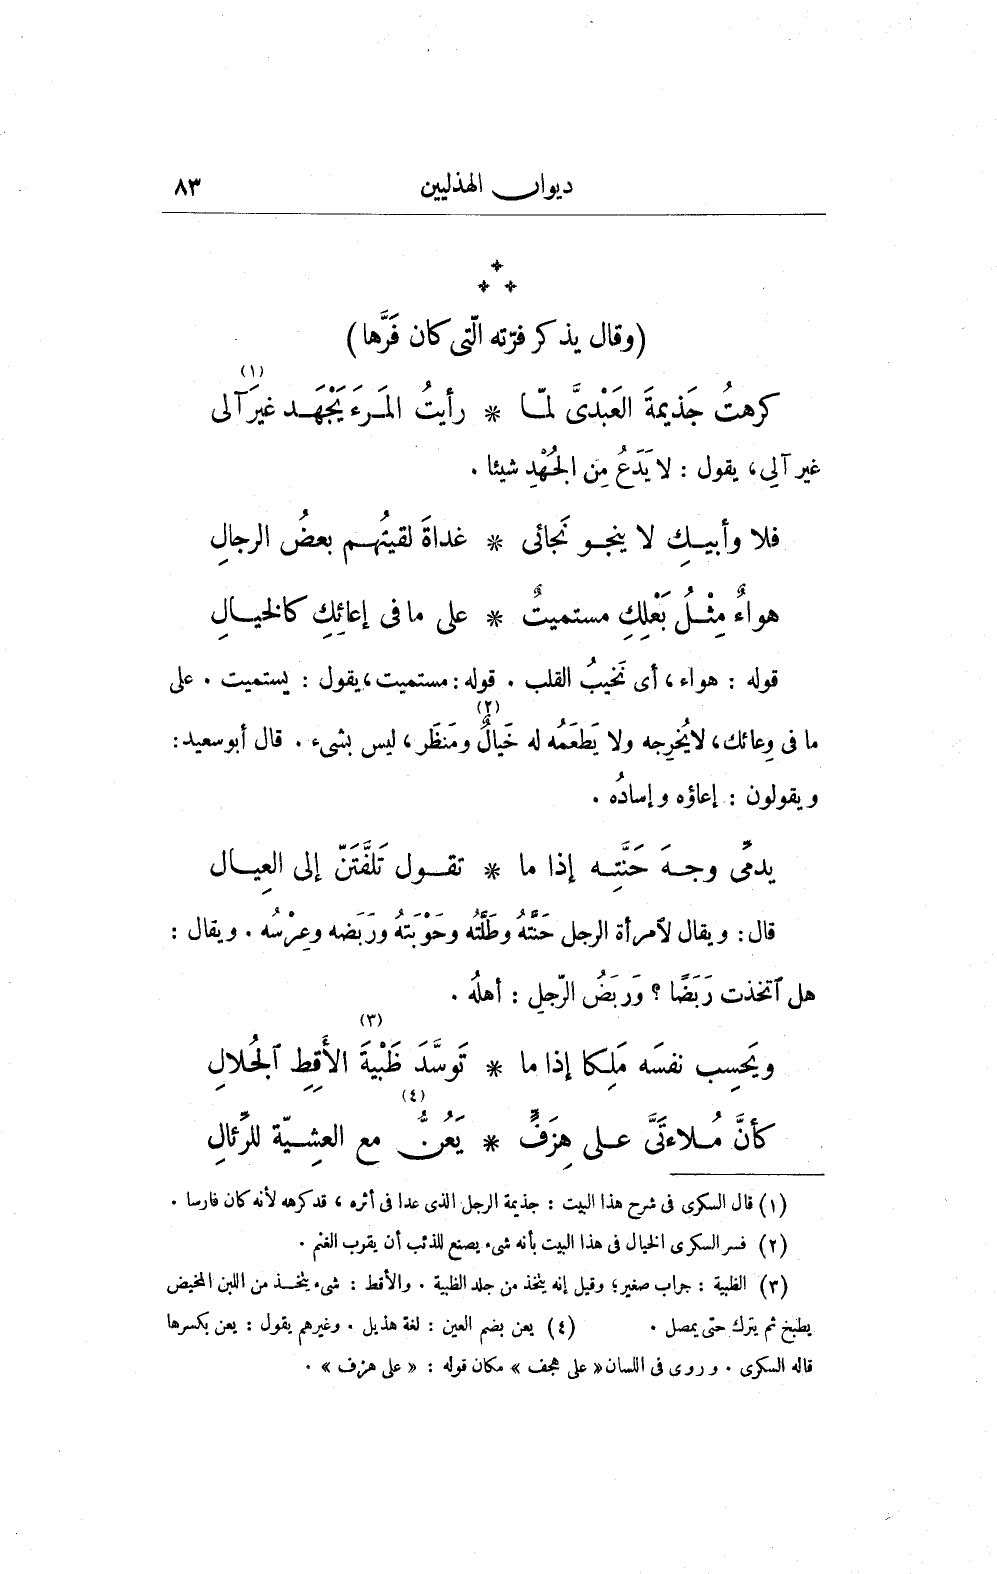 ديوان الهذليين ٨٣
(وقال يذكر فرّته الّتى كان فَرَّها)
كرهتُ جَذيمةَ العَبْدىَّ لمّا * رأيتُ المَرءَ يَجْهَد غيرَ آلى (١)
غير آلِى، يقول : لا يَدَعُ مِن الجُهْدِ شيئا .
فلا وأبيكِ لا ينجو نَجائى * غداةَ لقيتُهم بعضُ الرجالِ
هواءٌ مِثْلُ بَعْلِكِ مستميتٌ * على ما فى إعائِكِ كالخيالِ
قوله : هواء، أى نَخيبُ القلب . قوله : مستميت، يقول : يستميت . على
ما فى وِعائك، لا يُخرِجه ولا يَطعَمُه له خَيالٌ (٢) ومَنظَر، ليس بشىء . قال أبو سعيد :
ويقولون : إعاؤه وإسادُه .
يدمِّى وجهَ حَنَّتِه إذا ما * تقول تَلَفَّتَنّ إلى العِيال
قال : ويقال لآمرأة الرجل حَنَّتُه وطَلَّتُه وحَوْبَتهُ ورَبَضه وعِرْسُه . ويقال :
هل ٱتخذت رَبَضًا ؟ ورَبَضُ الرّجلِ : أهلُه .
ويَحسِب نفسَه مَلِكا إذا ما * تَوسَّدَ ظَبْيةَ (٣) الأَقِطِ ٱلجُلالِ
كأنَّ مُلاءتَىَّ على هِزَفٍّ * يَعُنُّ (٤) مع العشِيّة للرِّئالِ
(١) قال السكرى فى شرح هذا البيت : جذيمة الرجل الذى عدا فى أثره ، قد كرهه لأنه كان فارسا .
(٢) فسر السكرى الخيال فى هذا البيت بأنه شىء يصنع للذئب أن يقرب الغنم .
(٣) الظبية : جراب صغير؛ وقيل إنه يتخذ من جلد الظبية . والأقط : شىء يتخذ من اللبن المخيض
يطبخ ثم يترك حتى يمصل . (٤) يعن بضم العين : لغة هذيل . وغيرهم يقول : يعن بكسرها
قاله السكرى . وروى فى اللسان «على هجف» مكان قوله : «على هزف» .